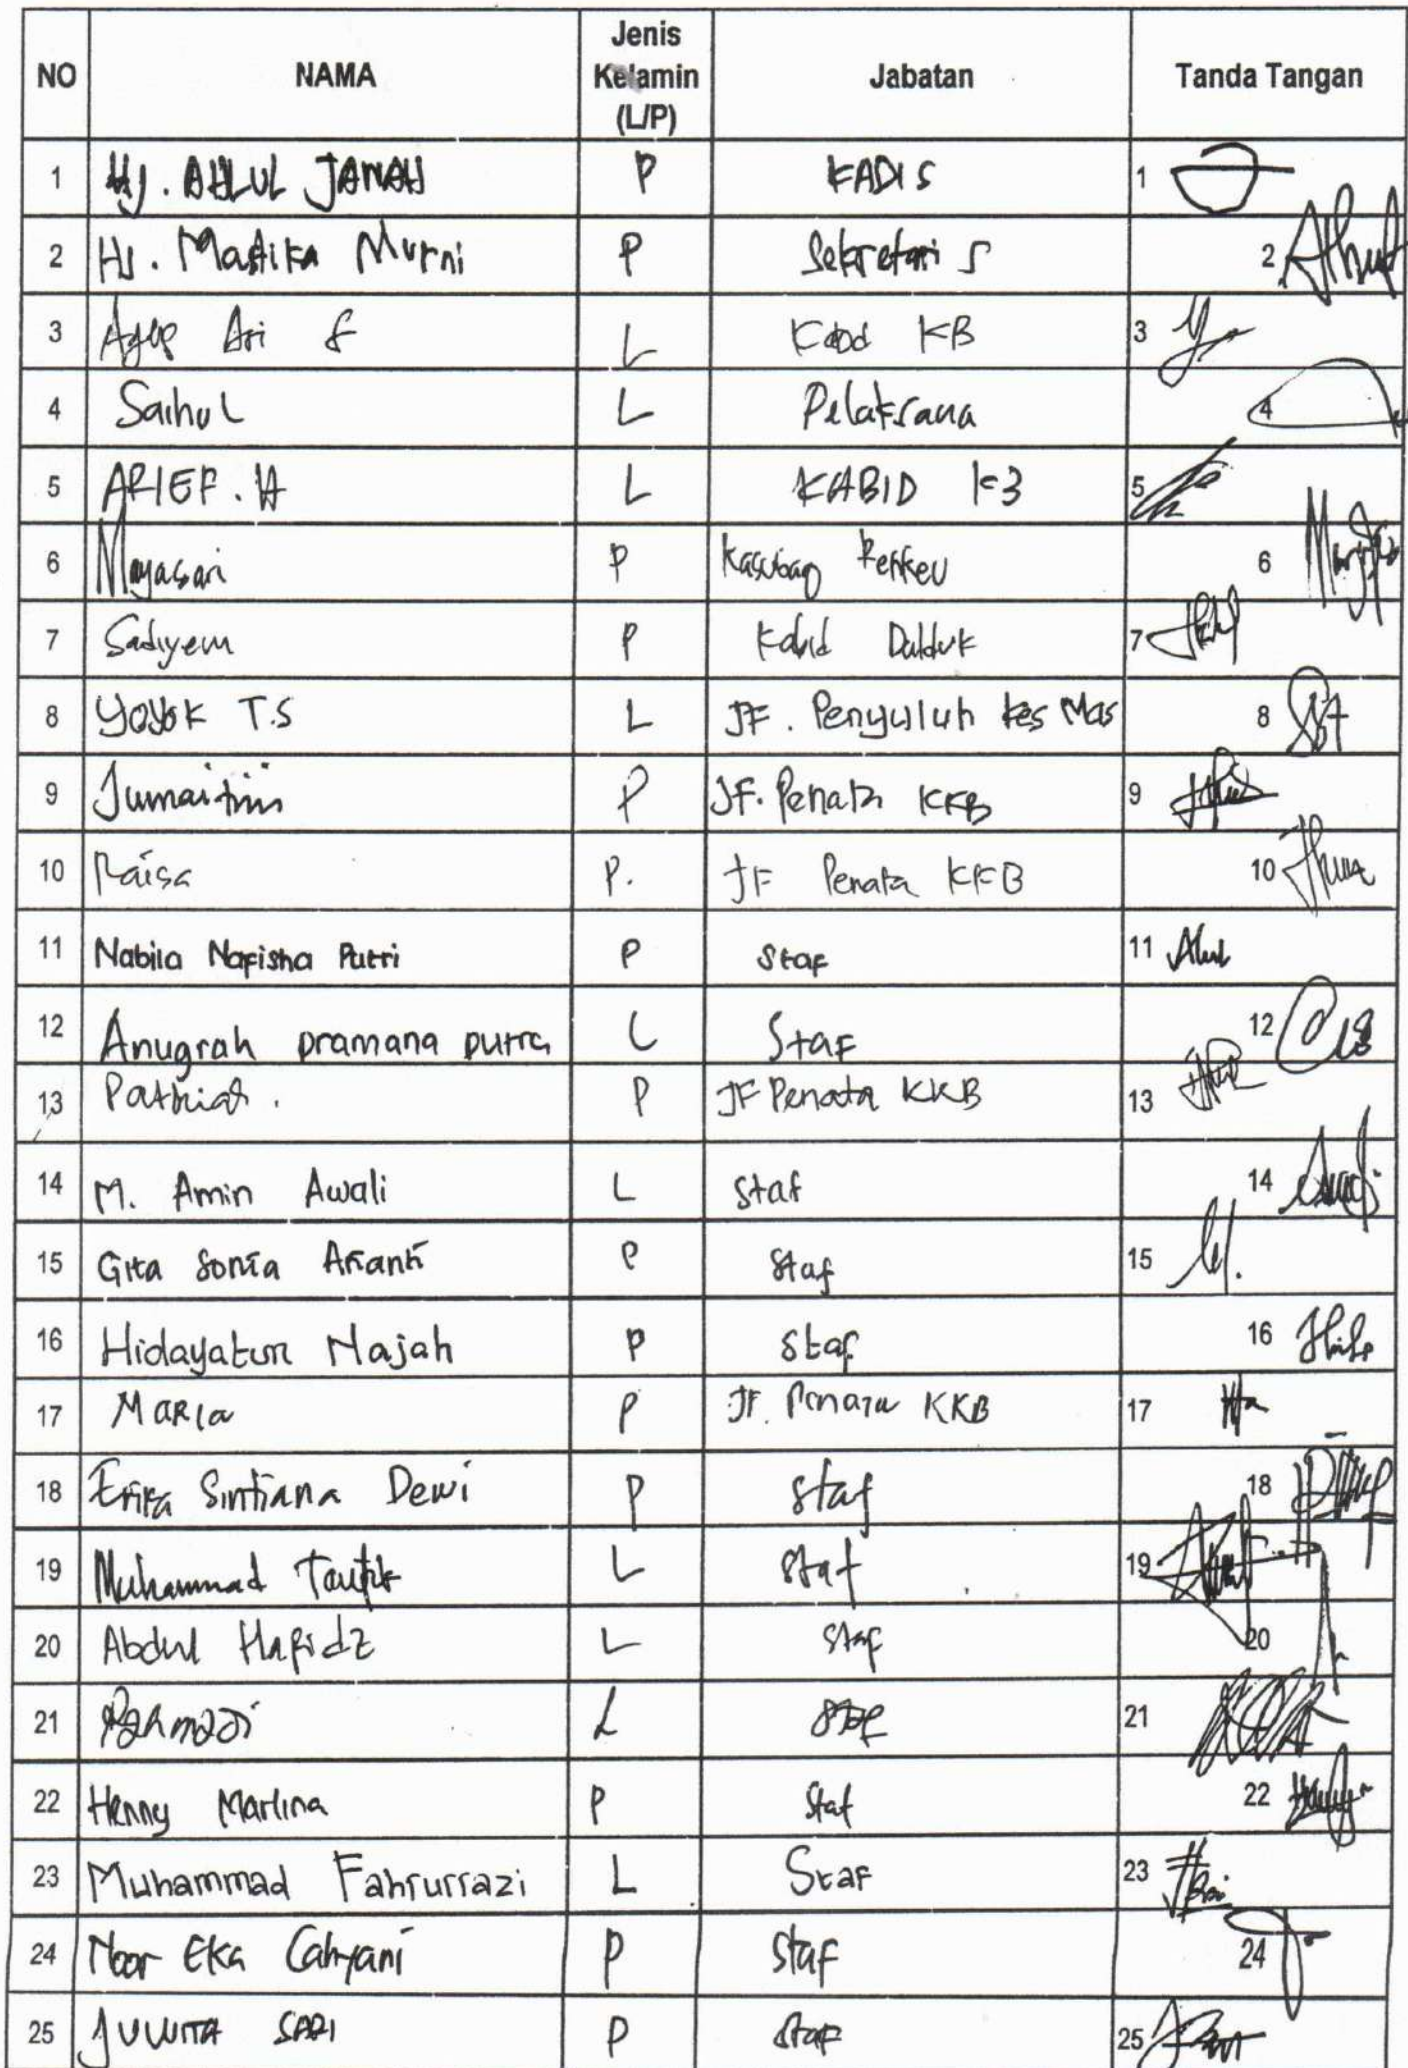 NO NAMA Jenis Kelamin (L/P) Jabatan Tanda Tangan
1 Hj. AHLUL JANAH P KADIS 1
2 Hj. Mastika Murni P Sekretaris 2
3 Agus Ari S L Kabid KB 3
4 Saihul L Pelaksana 4
5 ARIEF. H L KABID K3 5
6 Mayasari P Kasubag Renkeu 6
7 Sadiyem P Kabid Dalduk 7
8 YOYOK T.S L JF. Penyuluh Kes Mas 8
9 Jumaitini P JF. Penata KKB 9
10 Raisa P. JF Penata KKB 10
11 Nabila Nafisha Putri P Staf 11
12 Anugrah pramana putra L Staf 12
13 P JF Penata KKB 13
14 M. Amin Awali L Staf 14
15 Gita Sonia Arianti P Staf 15
16 Hidayatun Najah P Staf 16
17 MARIa P JF. Penata KKB 17
18 Erika Sintiana Dewi P Staf 18
19 Muhammad Taufik L Staf 19
20 Abdul Hafidz L Staf 20
21 Rahmadi L Staf 21
22 Henny Marlina P Staf 22
23 Muhammad Fahrurrazi L Staf 23
24 Noor Eka Cahyani P Staf 24
25 JUWITA SARI P Staf 25